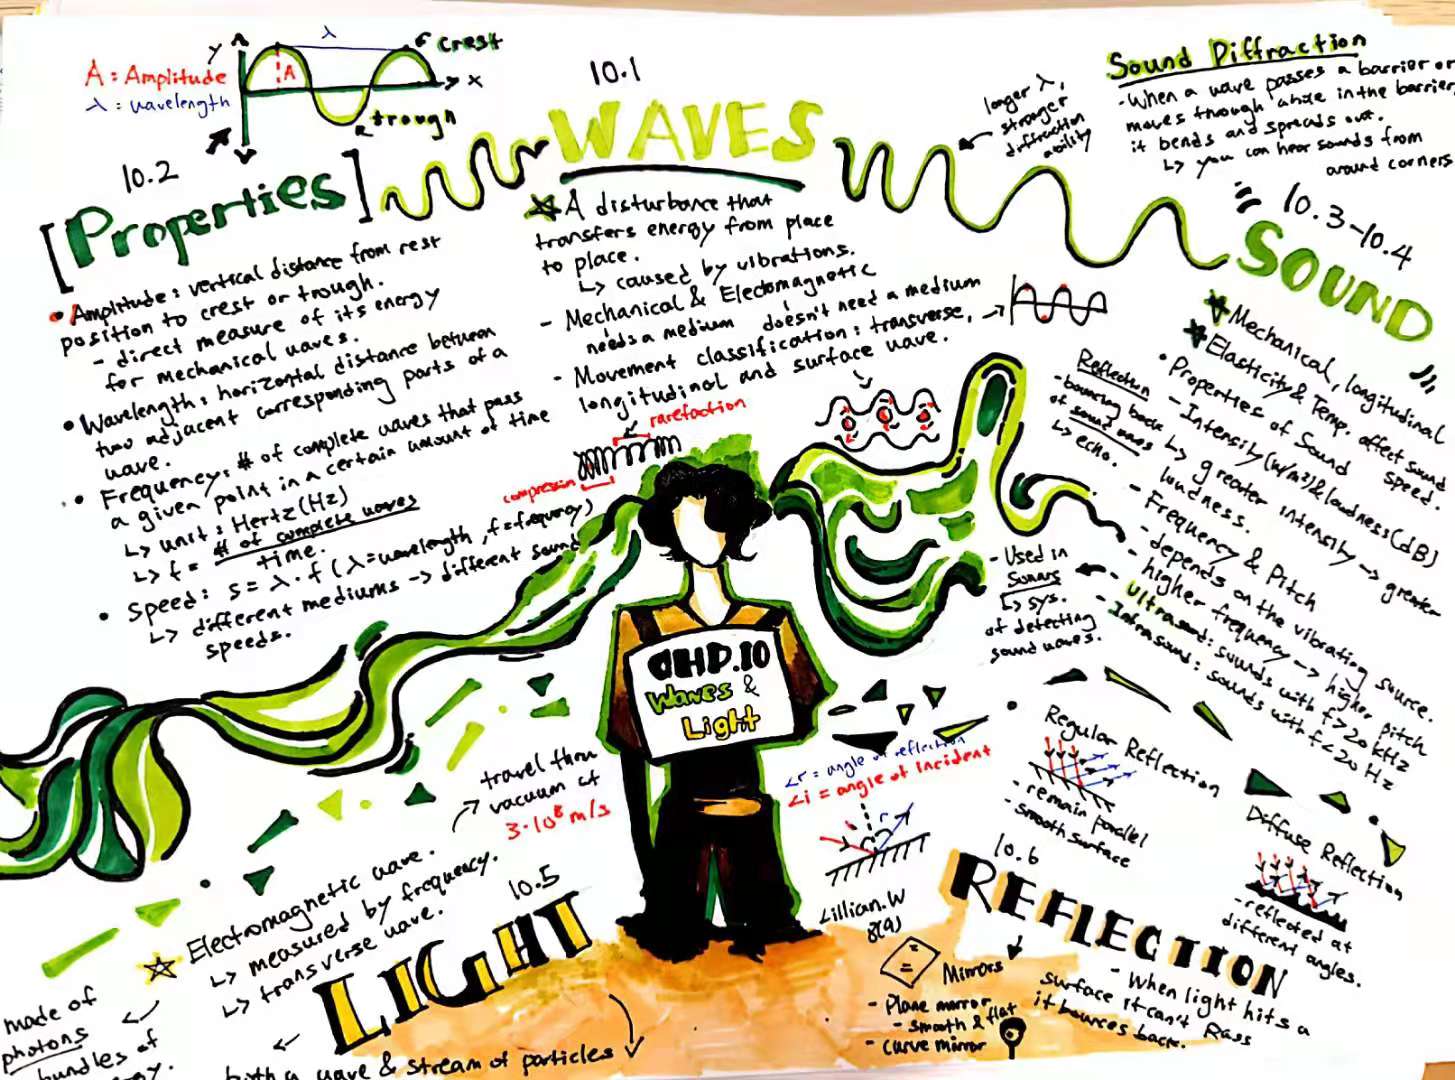 A = Amplitude
λ = wavelength
y
λ
A
x
crest
trough
10.2
[Properties]
• Amplitude: vertical distance from rest
position to crest or trough.
- direct measure of its energy
for mechanical waves.
• Wavelength: horizontal distance between
two adjacent corresponding parts of a
wave.
• Frequency: # of complete waves that pass
a given point in a certain amount of time
↳ unit: Hertz (Hz)
↳ f = # of complete waves
time.
• Speed: s = λ · f (λ = wavelength, f = frequency)
↳ different mediums → different sound
speeds.
10.1
WAVES
A disturbance that
transfers energy from place
to place.
↳ caused by vibrations.
- Mechanical & Electomagnetic
needs a medium doesn't need a medium
- Movement classification: transverse,
longitudinal and surface wave.
rarefaction
compression
longer λ,
stronger
diffraction
ability
Sound Diffraction
- When a wave passes a barrier or
moves through a hole in the barrier,
it bends and spreads out.
↳ you can hear sounds from
around corners
10.3-10.4
SOUND
Mechanical, longitudinal
Elasticity & Temp. affect sound
speed.
• Properties of Sound
- Intensity (w/m2) & loudness (dB)
↳ greater intensity → greater
loudness.
- Frequency & Pitch
- depends on the vibrating source.
- higher frequency → higher pitch
- Ultrasound: sounds with f > 20 kHz
- Infrasound: sounds with f < 20 Hz
Reflection
- bouncing back
of sound waves
↳ echo.
- Used in
sonars
↳ sys.
of detecting
sound waves.
CHP.10
Waves &
Light
travel thru
vacuum at
3·10⁸ m/s
10.5
LIGHT
Electromagnetic wave.
↳ measured by frequency.
↳ transverse wave.
made of
photons
bundles of
both a wave & stream of particles
∠r = angle of reflection
∠i = angle of incident
i
r
Lillian.W
8(9)
10.6
REFLECTION
- When light hits a
surface it can't pass
it bounces back.
Mirrors
- Plane mirror
- smooth & flat
- curve mirror
• Regular Reflection
- remain parallel
- smooth surface
• Diffuse Reflection
- reflected at
different angles.